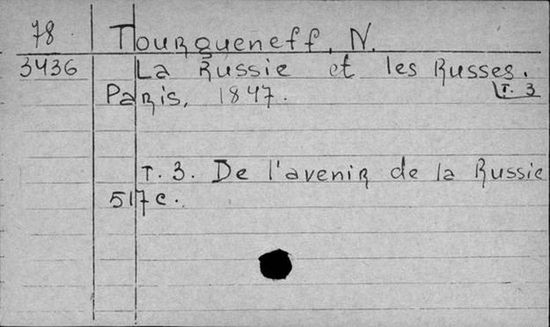 78 Tourgueneff, N.
3436 La Russie et les Russes.
Paris, 1847. T. 3
T. 3. De l'avenir de la Russie
517 c.